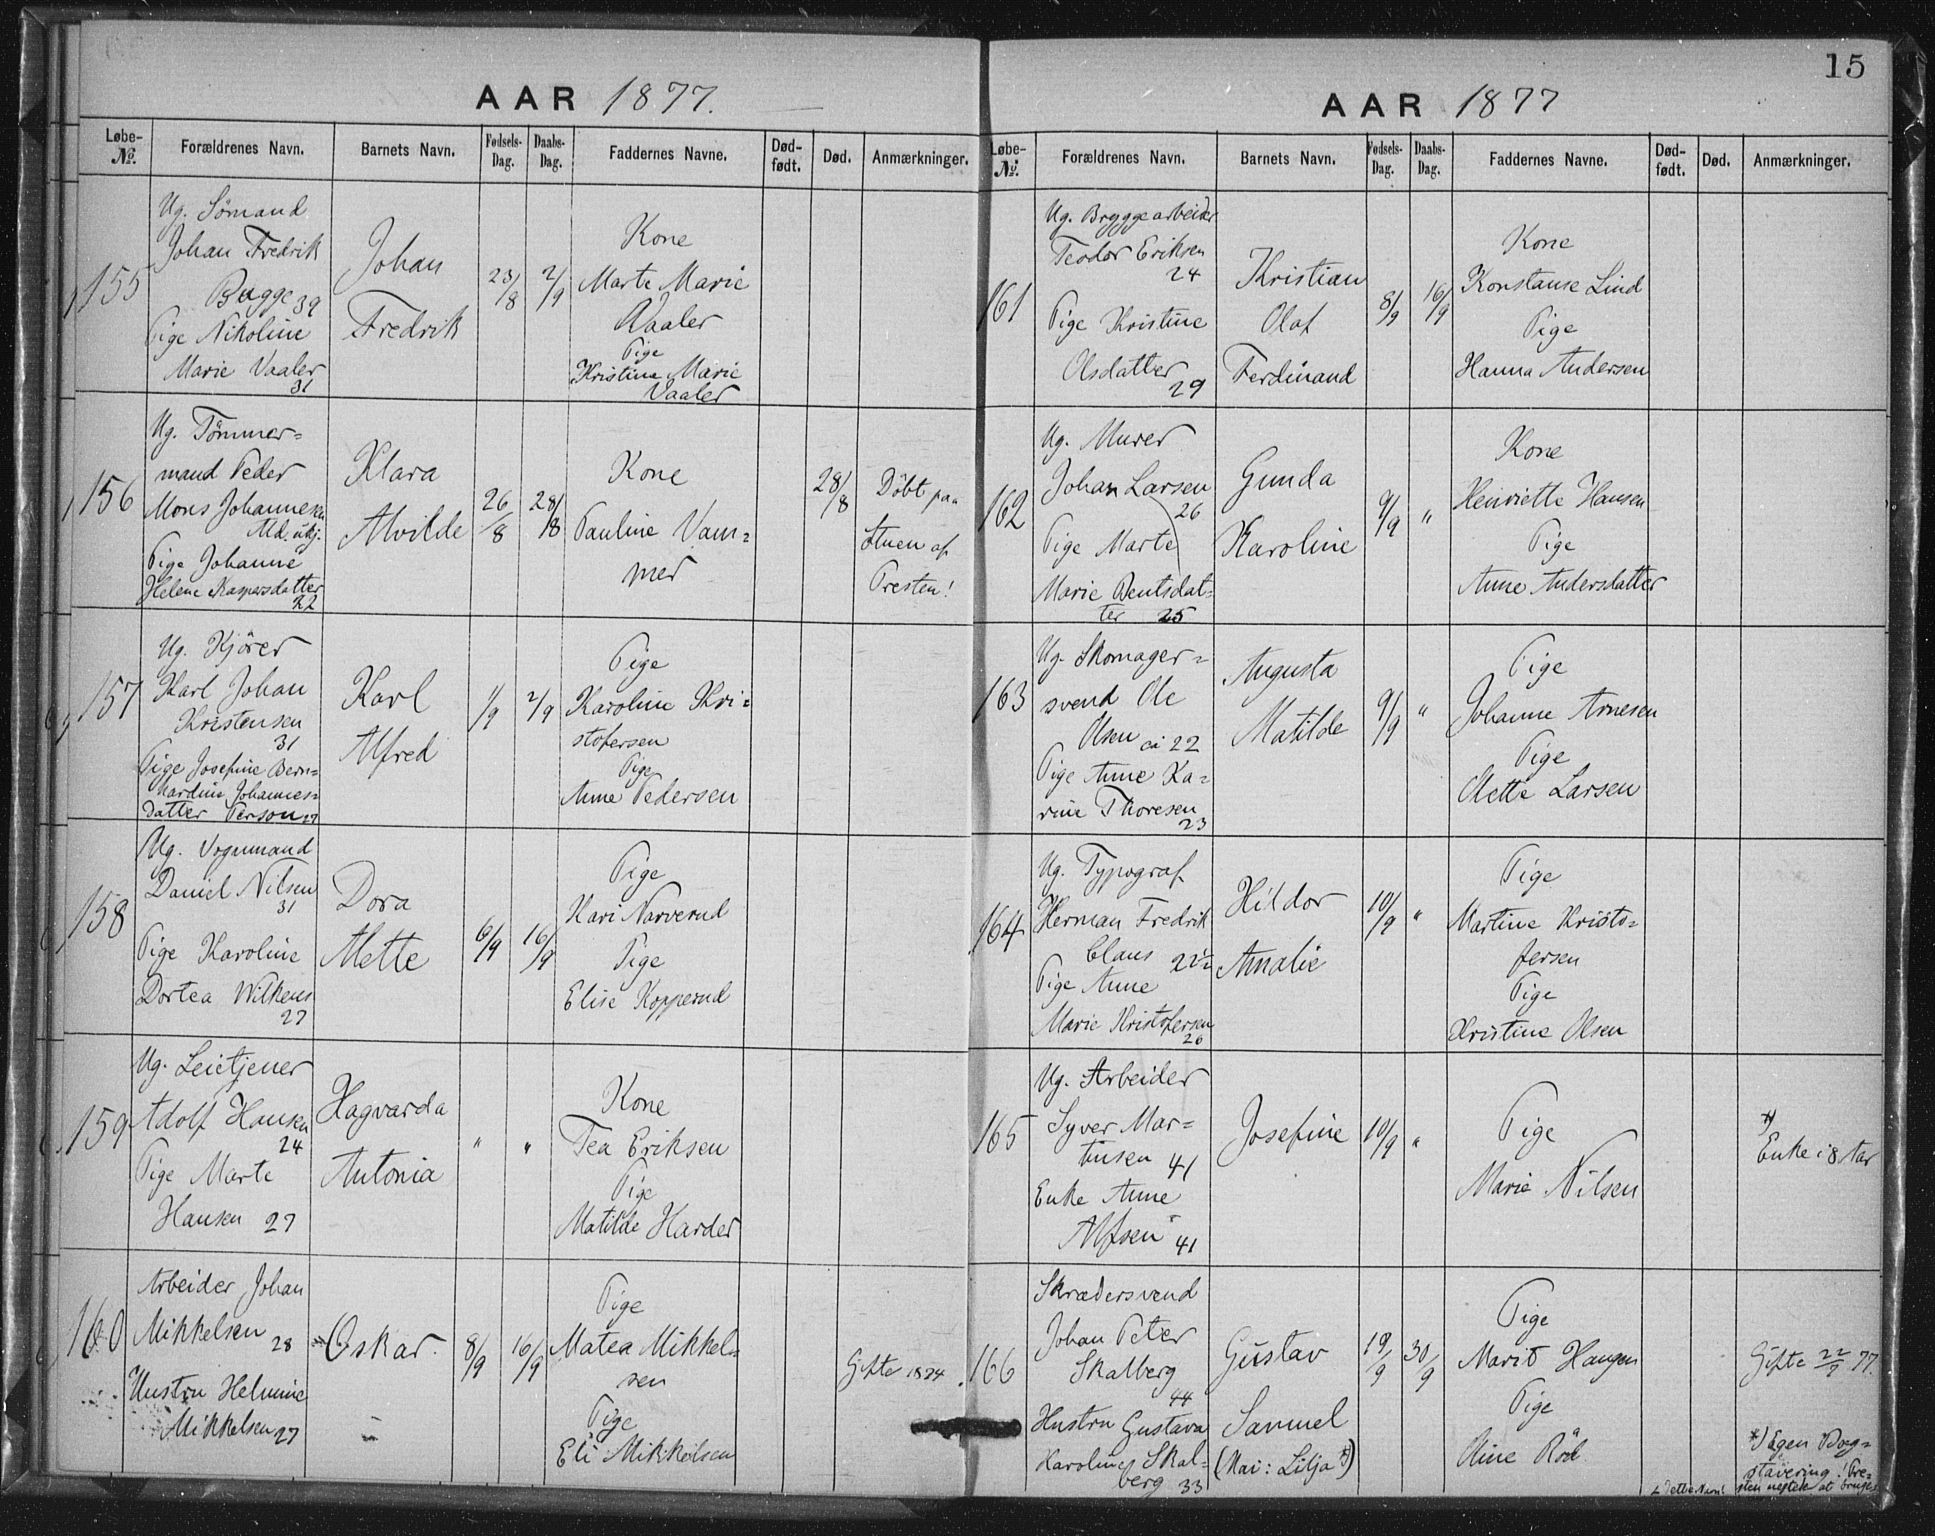 AAR 1877.
Løbe-No.
Forældrenes Navn.
Barnets Navn.
Fødsels-Dag.
Daabs-Dag.
Faddernes Navne.
Død-født.
Død.
Anmærkninger.
155
Ug. Sömand
Johan Fredrik
Bugge 39
Pige Nikoline
Marie Vaaler
31
Johan
Fredrik
23/8
2/9
Kone
Marte Marie
Vaaler
Pige
Kristine Marie
Vaaler
156
Ug. Tömmer=
mand Peder
Mons Johannesen
Ald. ubkj.
Pige Johanne
Helene Kaspersdatter
22
Klara
Alvilde
26/8
28/8
Kone
Pauline Vam=
mer
28/8
Döbt paa
Stuen af
Presten!
157
Ug. Kjörer
Karl Johan
Kristensen
31
Pige Josefine Bern=
hardine Johannes=
datter Person 27
Karl
Alfred
1/9
2/9
Pige
Karoline Kri=
stofersen
Pige
Anne Pedersen
158
Ug. Vognmand
Daniel Nilsen
31
Pige Karoline
Dortea Wilkens
27
Dora
Mette
6/9
16/9
Pige
Kari Narverud
Pige
Elise Kopperud
159
Ug. Leietjener
Adolf Hansen
24
Pige Marte
Hansen 27
Hagvarda
Antonia
"
"
Kone
Tea Eriksen
Pige
Matilde Harder
160
Arbeider Johan
Mikkelsen 28
Hustru Helmine
Mikkelsen 27
Oskar.
8/9
16/9
Pige
Matea Mikkel=
sen
Pige
Eli Mikkelsen
Gifte 1874
15
AAR 1877
Løbe-No.
Forældrenes Navn.
Barnets Navn.
Fødsels-Dag.
Daabs-Dag.
Faddernes Navne.
Død-født.
Død.
Anmærkninger.
161
Ug. Bryggearbeider
Teodor Eriksen
24
Pige Kristine
Olsdatter
29
Kristian
Olaf
Ferdinand
8/9
16/9
Kone
Konstanse Lind
Pige
Hanna Andersen
162
Ug. Murer
Johan Larsen
26
Pige Marte
Marie Bentsdat=
ter 25
Gunda
Karoline
9/9
"
Kone
Henriette Hansen
Pige
Anne Andersdatter
163
Ug. Skomager=
svend Ole
Olsen ca 22
Pige Anne Ka=
rine Thoresen
23
Augusta
Matilde
9/9
"
Pige
Johanne Arnesen
Pige
Mette Larsen
164
Ug. Typograf
Herman Fredrik
Claus 22½
Pige Anne
Marie Kristofersen
26
Hildor
Amalie
10/9
"
Pige
Martine Kristo=
fersen
Pige
Kristine Olsen
165
Ug. Arbeider
Syver Mar=
tinsen 41
Enke Anne
Alfsen 41
Josefine
10/9
"
Pige
Marie Nilsen
*)
Enke i 8 Aar
166
Skrædersvend
Johan Peter
Skalberg
44
Hustru Gustava
Karoline Skal=
berg 33
Gustav
Samuel
(Nai: Lilja *)
19/9
30/9
Pige
Marit Haugen
Pige
Oline Röd
Gifte 22/9 77.
*) Egen Bog=
stavering! Pre=
sten negtede at bruge
dette Navn!